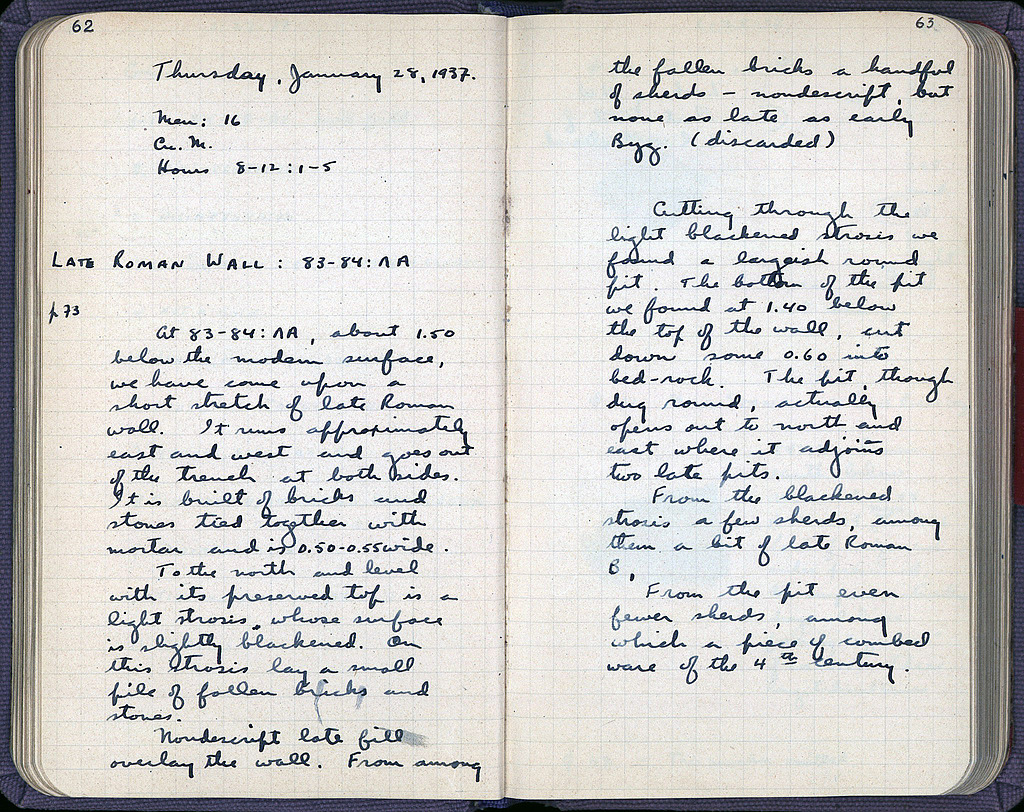 62
Thursday, January 28, 1937.
Men: 16
Cu. M.
Hours 8-12:1-5
LATE ROMAN WALL: 83-84:ΛΑ
p 73
At 83-84:ΛΑ, about 1.50
below the modern surface,
we have come upon a
short stretch of late Roman
wall. It runs approximately
east and west and goes out
of the trench at both sides.
It is built of bricks and
stones tied together with
mortar and is 0.50-0.55 wide.
To the north and level
with its preserved top is a
light strosis, whose surface
is slightly blackened. On
this strosis lay a small
pile of fallen bricks and
stones.
Nondescript late fill
overlay the wall. From among
63
the fallen bricks a handful
of sherds – nondescript, but
none as late as early
Byz. (discarded)
Cutting through the
light blackened strosis we
found a largeish round
pit. The bottom of the pit
we found at 1.40 below
the top of the wall, cut
down some 0.60 into
bed-rock. The pit, though
dug round, actually
opens out to north and
east where it adjoins
two late pits.
From the blackened
strosis a few sherds, among
them a bit of late Roman
B.
From the pit even
fewer sherds, among
which a piece of combed
ware of the 4th century.